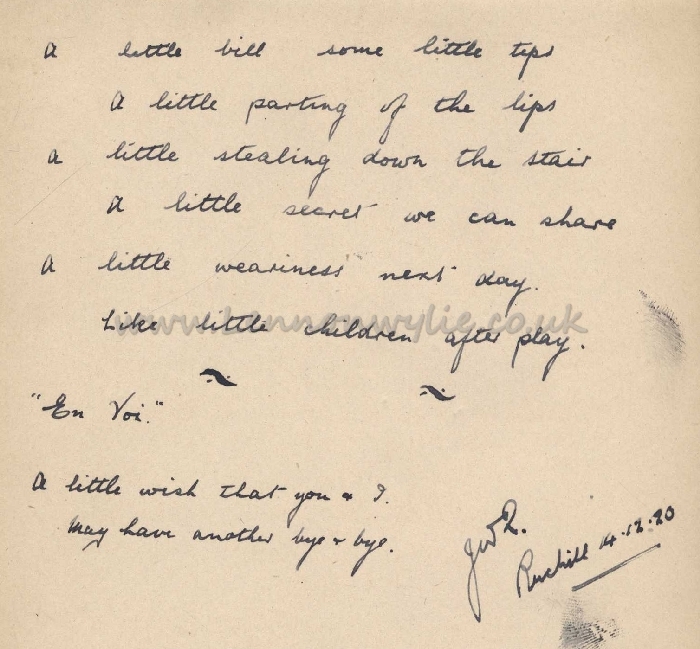 A little bill some little tips
A little parting of the lips
A little stealing down the stair
A little secret we can share
A little weariness next day.
Like little children after play.
www.Lennonwylie.co.uk
"En Voi."
A little wish that you & I.
May have another bye & bye.
JWR.
Ruchill 14.12.20